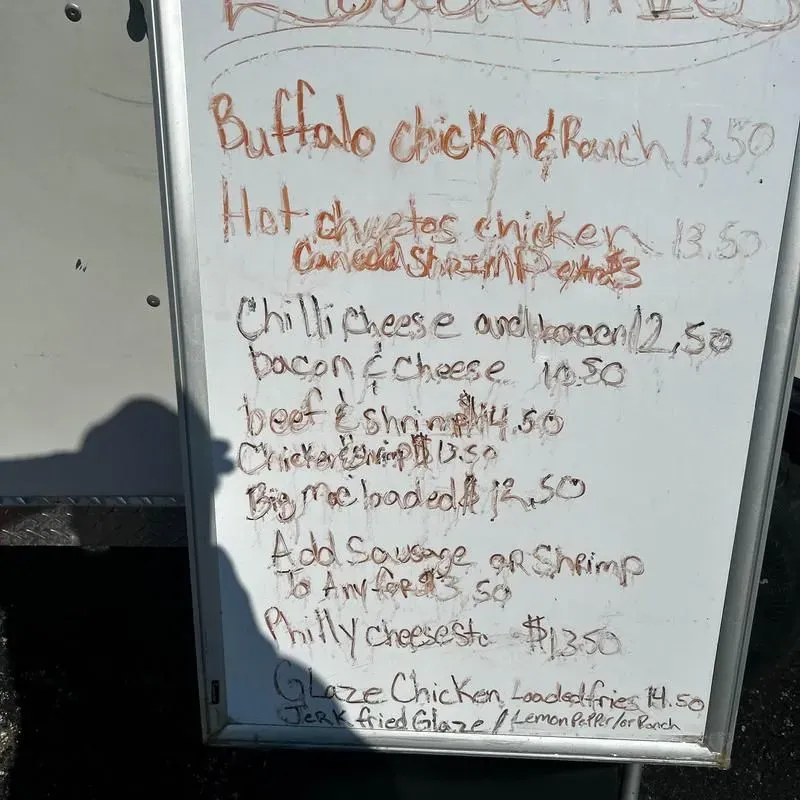 Loaded Fries
Buffalo chicken & Ranch 13.50
Hot cheetos chicken 13.50
Can add ShRIMP extra $3
Chilli cheese and bacon 12,50
bacon & Cheese
beef & shrimp $14.50
Chicken & shrimp $13.50
Big mac loaded $ 12,50
Add Sausage OR ShRimp
To Any for $3.50
Philly cheesest $1350
GLaze Chicken Loaded fries 14.50
JeRK fried Glaze / Lemon PePPer/or Ranch